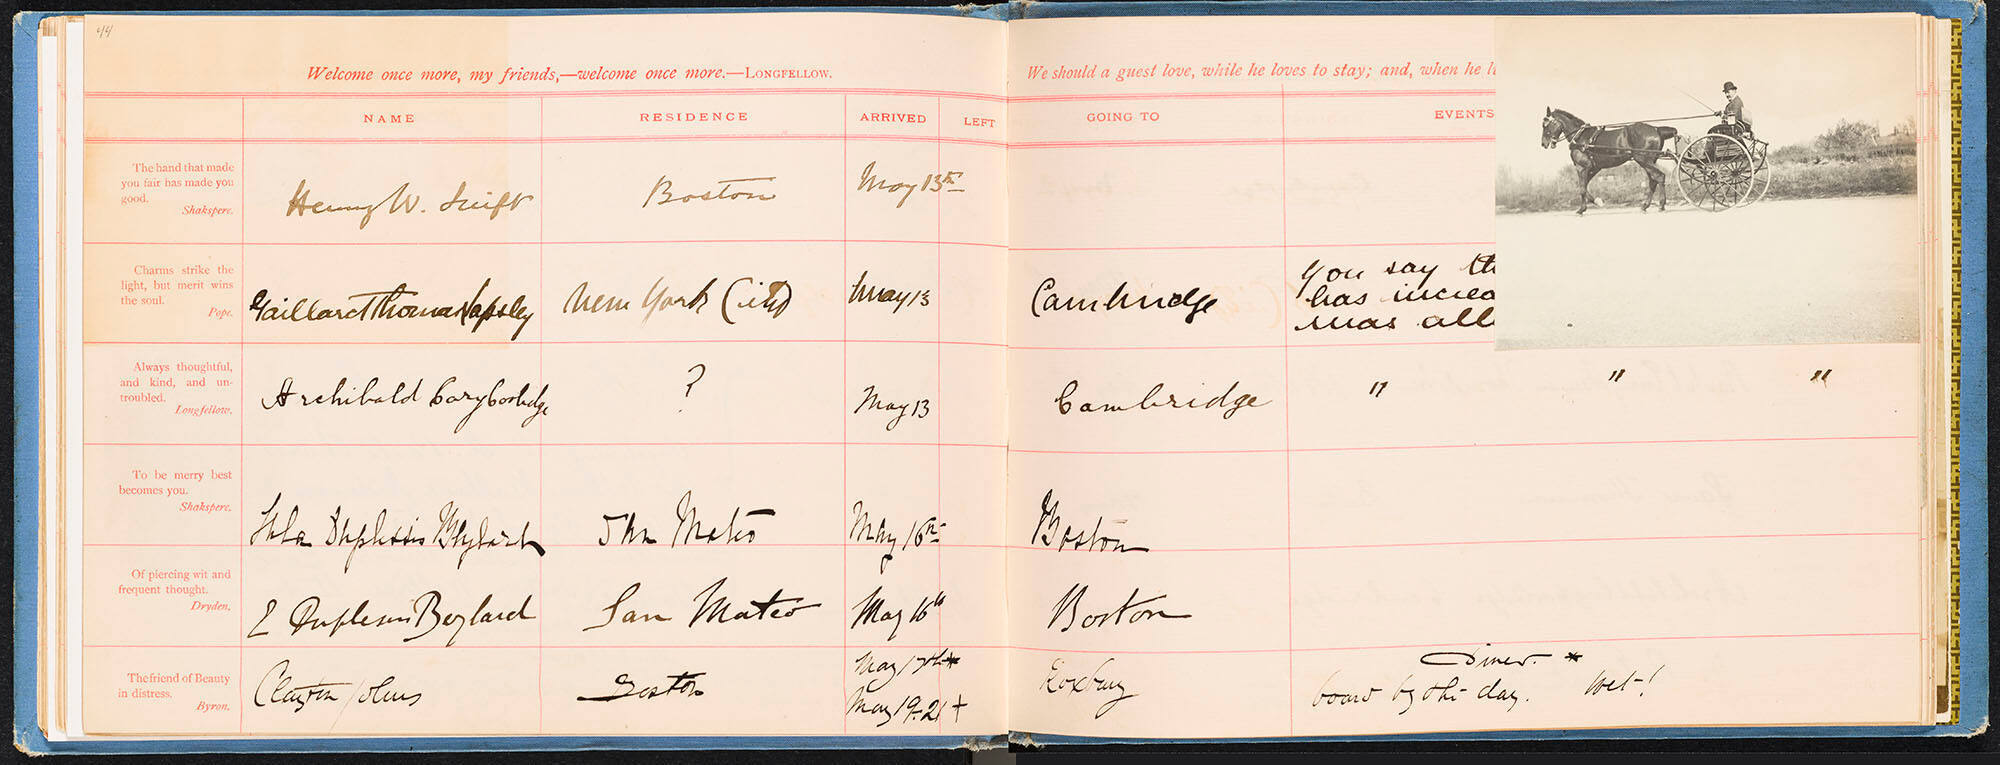 44
Welcome once more, my friends,—welcome once more.—LONGFELLOW.
We should a guest love, while he loves to stay; and, when he
NAME RESIDENCE ARRIVED LEFT GOING TO EVENTS
The hand that made
you fair has made you
good.
Shakspere.
Henry W. Swift Boston May 13th
Charms strike the
light, but merit wins
the soul.
Pope.
Gaillard Thomas Lapsley New York City May 13 Cambridge
You say
has increa
was all
Always thoughtful,
and kind, and un-
troubled.
Longfellow.
Archibald Cary Coolidge ? May 13 Cambridge " " "
To be merry best
becomes you.
Shakspere.
Duplessis Beylard San Mateo May 16th Boston
Of piercing wit and
frequent thought.
Dryden.
E Duplessis Beylard San Mateo May 16th Boston
The friend of Beauty
in distress.
Byron.
Clayton Johns Boston
May 17th *
May 19-21 +
Roxbury
Diner. *
board by the day. Wet!